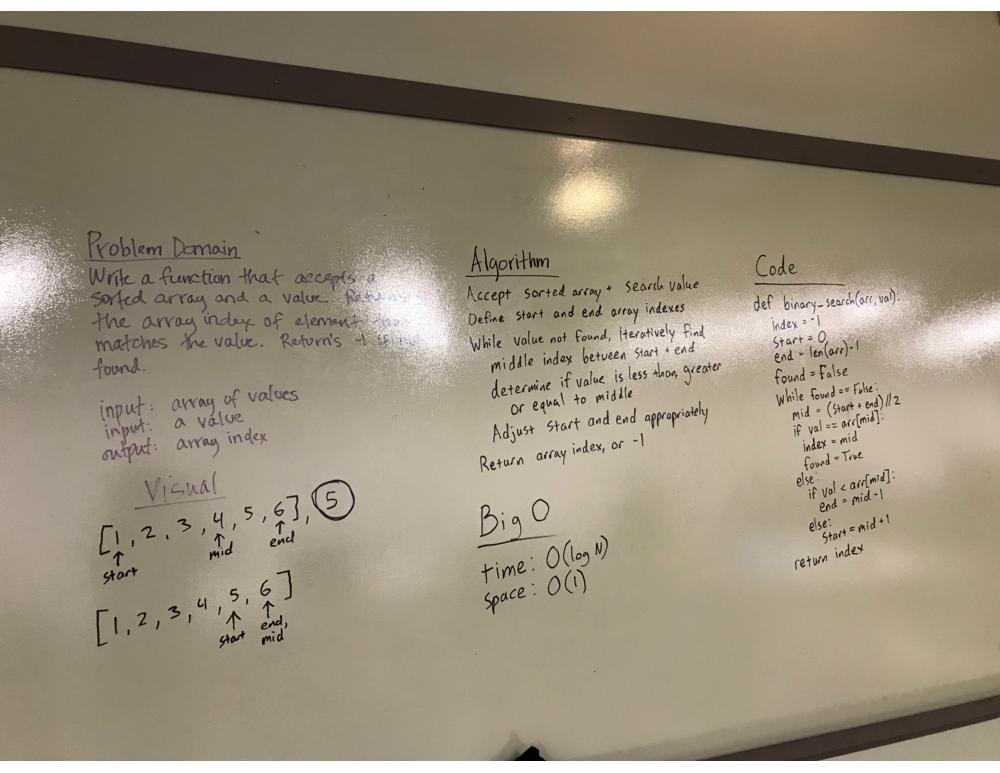 Problem Domain
Write a function that accepts a
sorted array and a value.
the array index of element
matches the value. Return's -1 if
found.
input: array of values
input: a value
output: array index
Visual
[1, 2, 3, 4, 5, 6], 5
start mid end
[1, 2, 3, 4, 5, 6]
start end,
mid
Algorithm
Accept sorted array + search value
Define start and end array indexes
While value not found, iteratively find
middle index between start + end
determine if value is less than, greater
or equal to middle
Adjust start and end appropriately
Return array index, or -1
Big O
time: O(log N)
space: O(1)
Code
def binary_search(arr, val):
index = -1
start = 0
end = len(arr)-1
found = False
While found == False:
mid = (start + end) // 2
if val == arr[mid]:
index = mid
found = True
else:
if val < arr[mid]:
end = mid-1
else:
start = mid + 1
return index